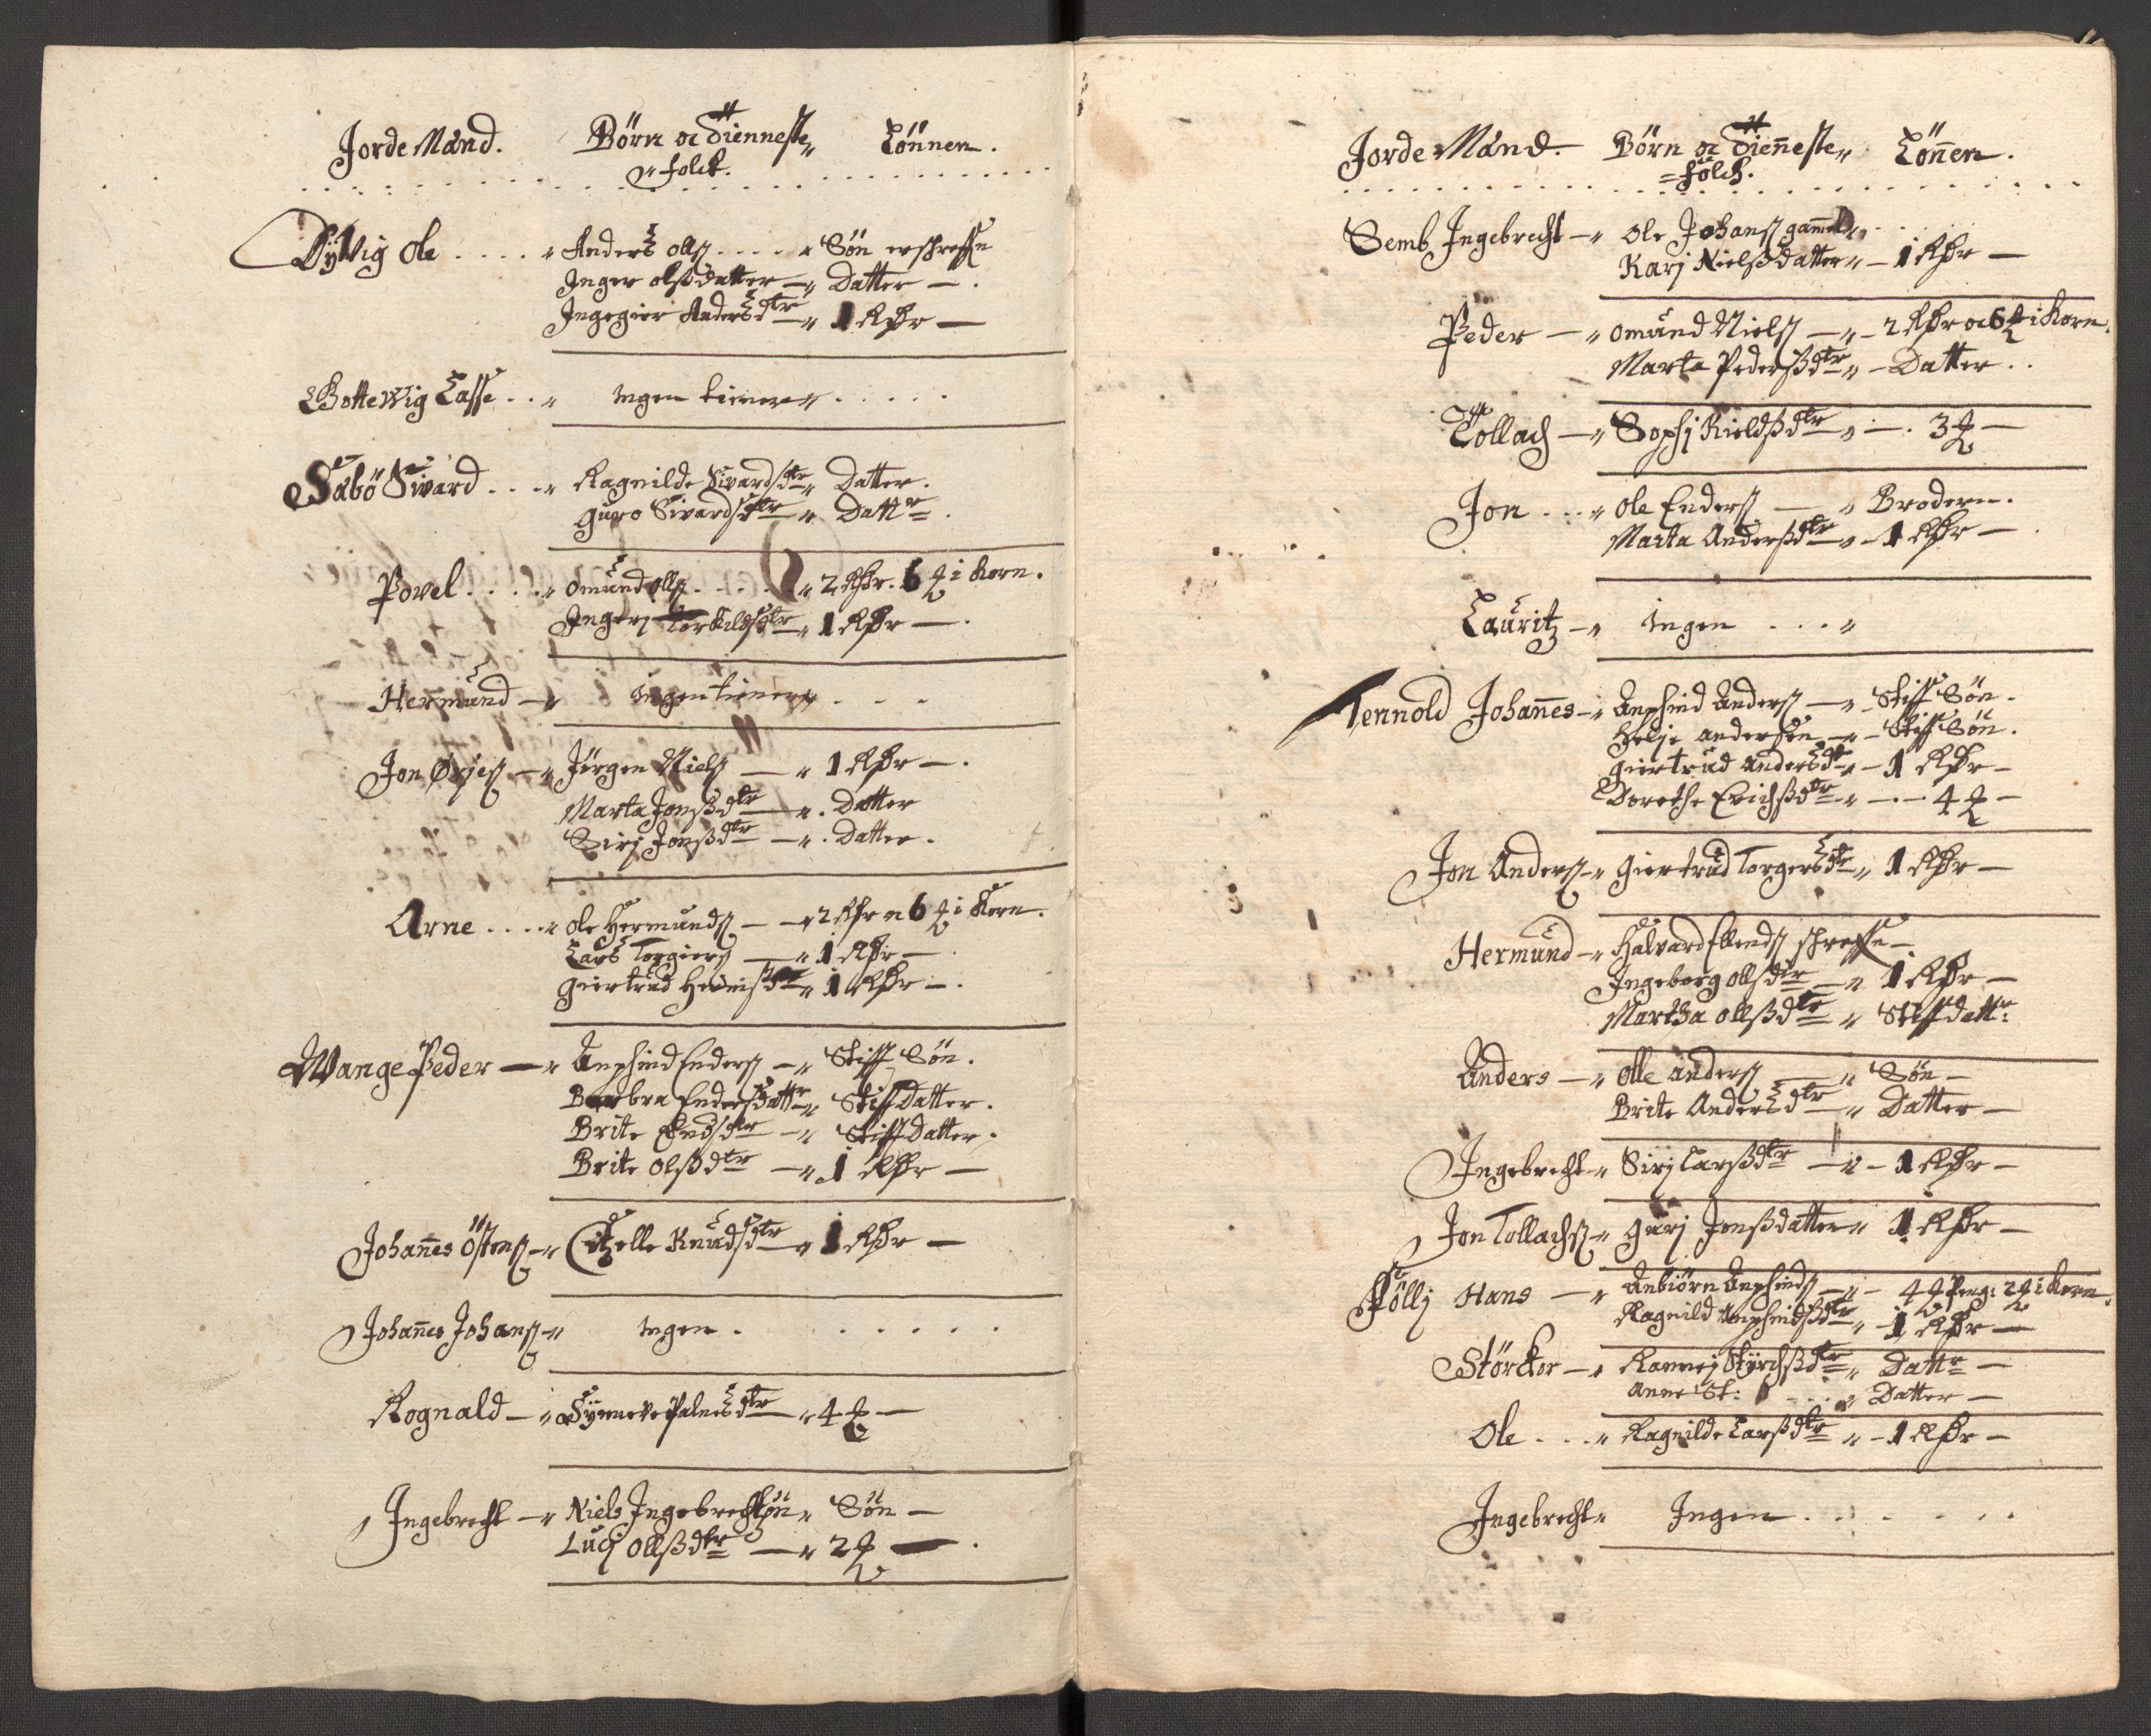 Jorde Mánd. Börn oc Tienneste, Lönnen.
folck.
Dyvig Ole . . . . „ Anders Olls . . . . „ Søn
Inger olsdatter — „ Datter — .
Ingegier Andersdtr — „ 1 Rdr —
Bottewig Lasse . . „ Ingen tienner . . . . .
Säbö Sivard . . . „ Ragnilde Sivardsdtr „ Datter .
Guro Sivardsdtr „ Dattr .
Povel . . . . „ Omund olls . . . . „ 2 Rdr. 6 ₰ i Korn .
Ingerj Torkildsdtr „ 1 Rdr — .
Hermund — „ Ingen tienner . . .
Jon — „ Jörgen Niels — „ 1 Rdr — .
Marta Jonsßdtr — „ . Datter
Sirj Jonßdtr — „ . Datter .
Arne . . . . „ ole Hermunds — „ 2 Rdr oc 6 ₰ i Korn .
Lars Torgiers — „ 1 Rdr —
Giertrud „ 1 Rdr — .
Wange Peder — „ Anphind Enders — „ Stiff Søn .
Barbra Endersdatter „ Stiff Datter .
Brite Endsdtr — „ Stiff Datter .
Brite Olßdtr — „ 1 Rdr —
Johannes Östens — „ Citzelle Knudsdtr „ 1 Rdr —
Johannes Johans — „ Ingen . . . . . .
Rognald — „ Synneve Palnesdtr — „ 4 ₰ —
Ingebrecht — „ Niels Ingebrechtsön „ Søn —
Lucj Ollßdtr — „ 2 ₰ — .
Jorde Mánd. Börn oc Tienneste „ Lönnen .
= folch .
Semb Ingebrecht — „ Ole Johans gammel
Karj Nielßdatter „ — 1 Rdr —
Peder — „ Omund Niels — „ — 2 Rdr oc 6 ₰ i Korn .
Marta Pedersßdtr „ — Datter . .
Tollach — „ Sophj Kieldßdtr „ — . 3 ₰ —
Jon . . . „ Ole Enders — „ Brodern .
Marta Andersßdtr — „ — 1 Rdr —
Lauritz — „ Ingen . . . „
Tennold Johannes — „ Anphind Anders — „ — Stiff Søn .
Helje andersen — „ — Stiff Søn .
Giertrud Andersdtr — „ — 1 Rdr —
Dorethe Erichßdtr — „ — . — 4 ₰ —
Jon Anders — „ Giertrud Torgersdtr „ 1 Rdr —
Hermund — „ Halvard Ellends
Ingeborg Ollsdtr — „ 1 Rdr —
Martha Ollßdtr „ Stiff dattr:
Anders — „ Olle anders — „ Søn —
Brite Andersdtr — „ Datter —
Ingebrecht „ Sirj Larßdtr — „ — 1 Rdr —
Jon Tollachs — „ Gurj Jonßdatter „ 1 Rdr —
Fölli Hans — „ Anbiörn Anphinds — „ — 4 ₰ Peng: 2 ₰ i Korn .
Ragnild Anphindßdtr „ 1 Rdr —
Störcker — „ Rannej Styrchßdtr „ Dattr —
Anne St: . . „ Datter —
Ole . . . „ Ragnilde Larßdtr „ — 1 Rdr —
Ingebrecht „ Ingen . . . . . .